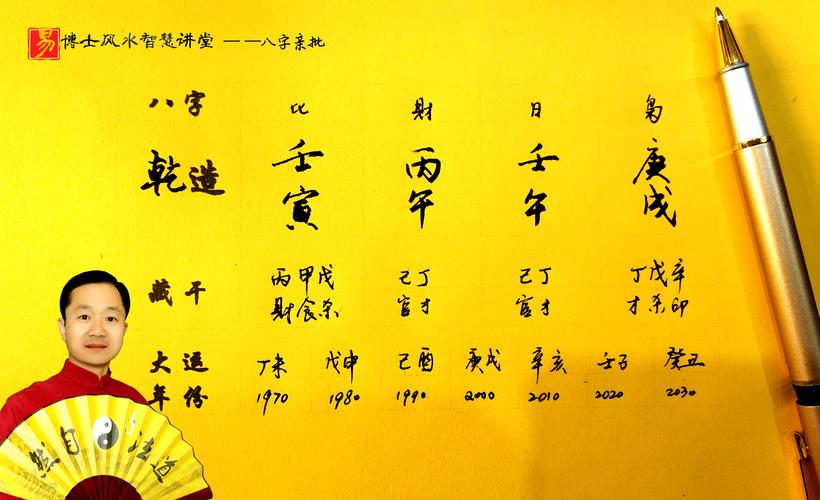 易 博士风水智慧讲堂 ——八字亲批
八字 比 财 日 枭
乾造 壬 丙 壬 庚
寅 午 午 戌
藏干 丙甲戊 己丁 己丁 丁戊辛
财食杀 官才 官才 才杀印
大运 丁未 戊申 己酉 庚戌 辛亥 壬子 癸丑
年份 1970 1980 1990 2000 2010 2020 2030
然自法道